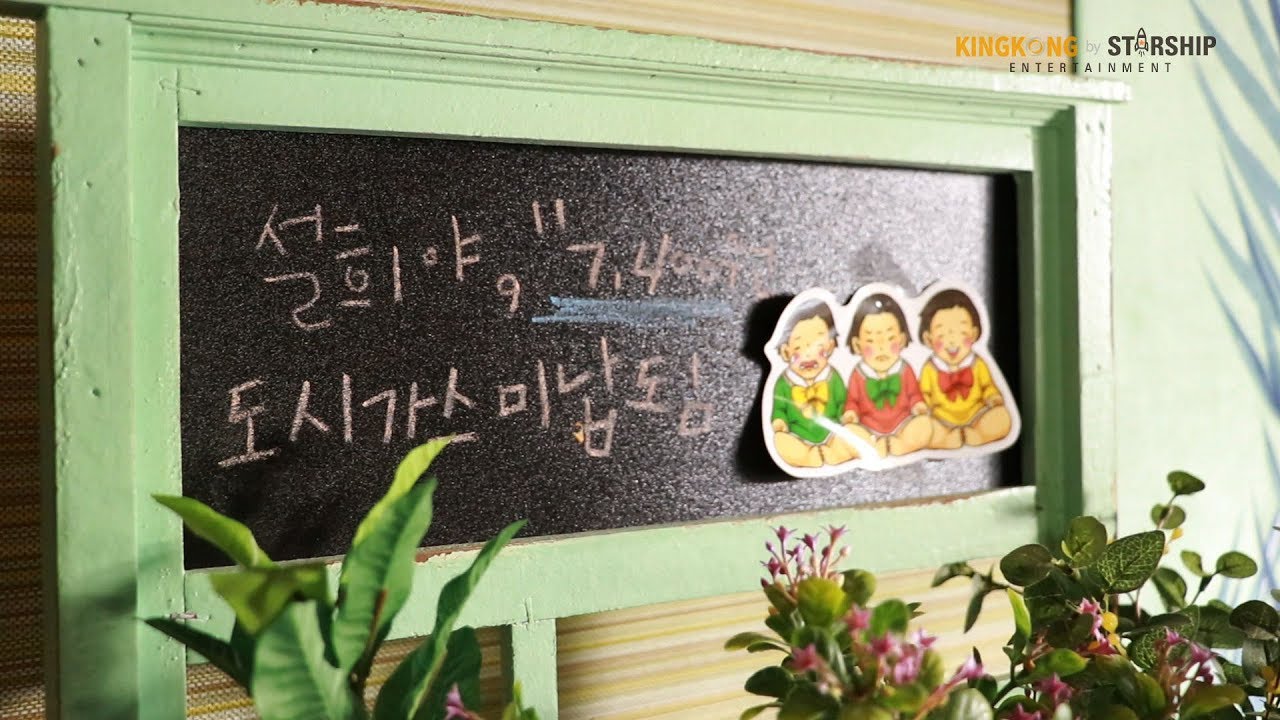 KINGKONG by STARSHIP
ENTERTAINMENT
설희야, "7,400원"
도시가스 미납됨